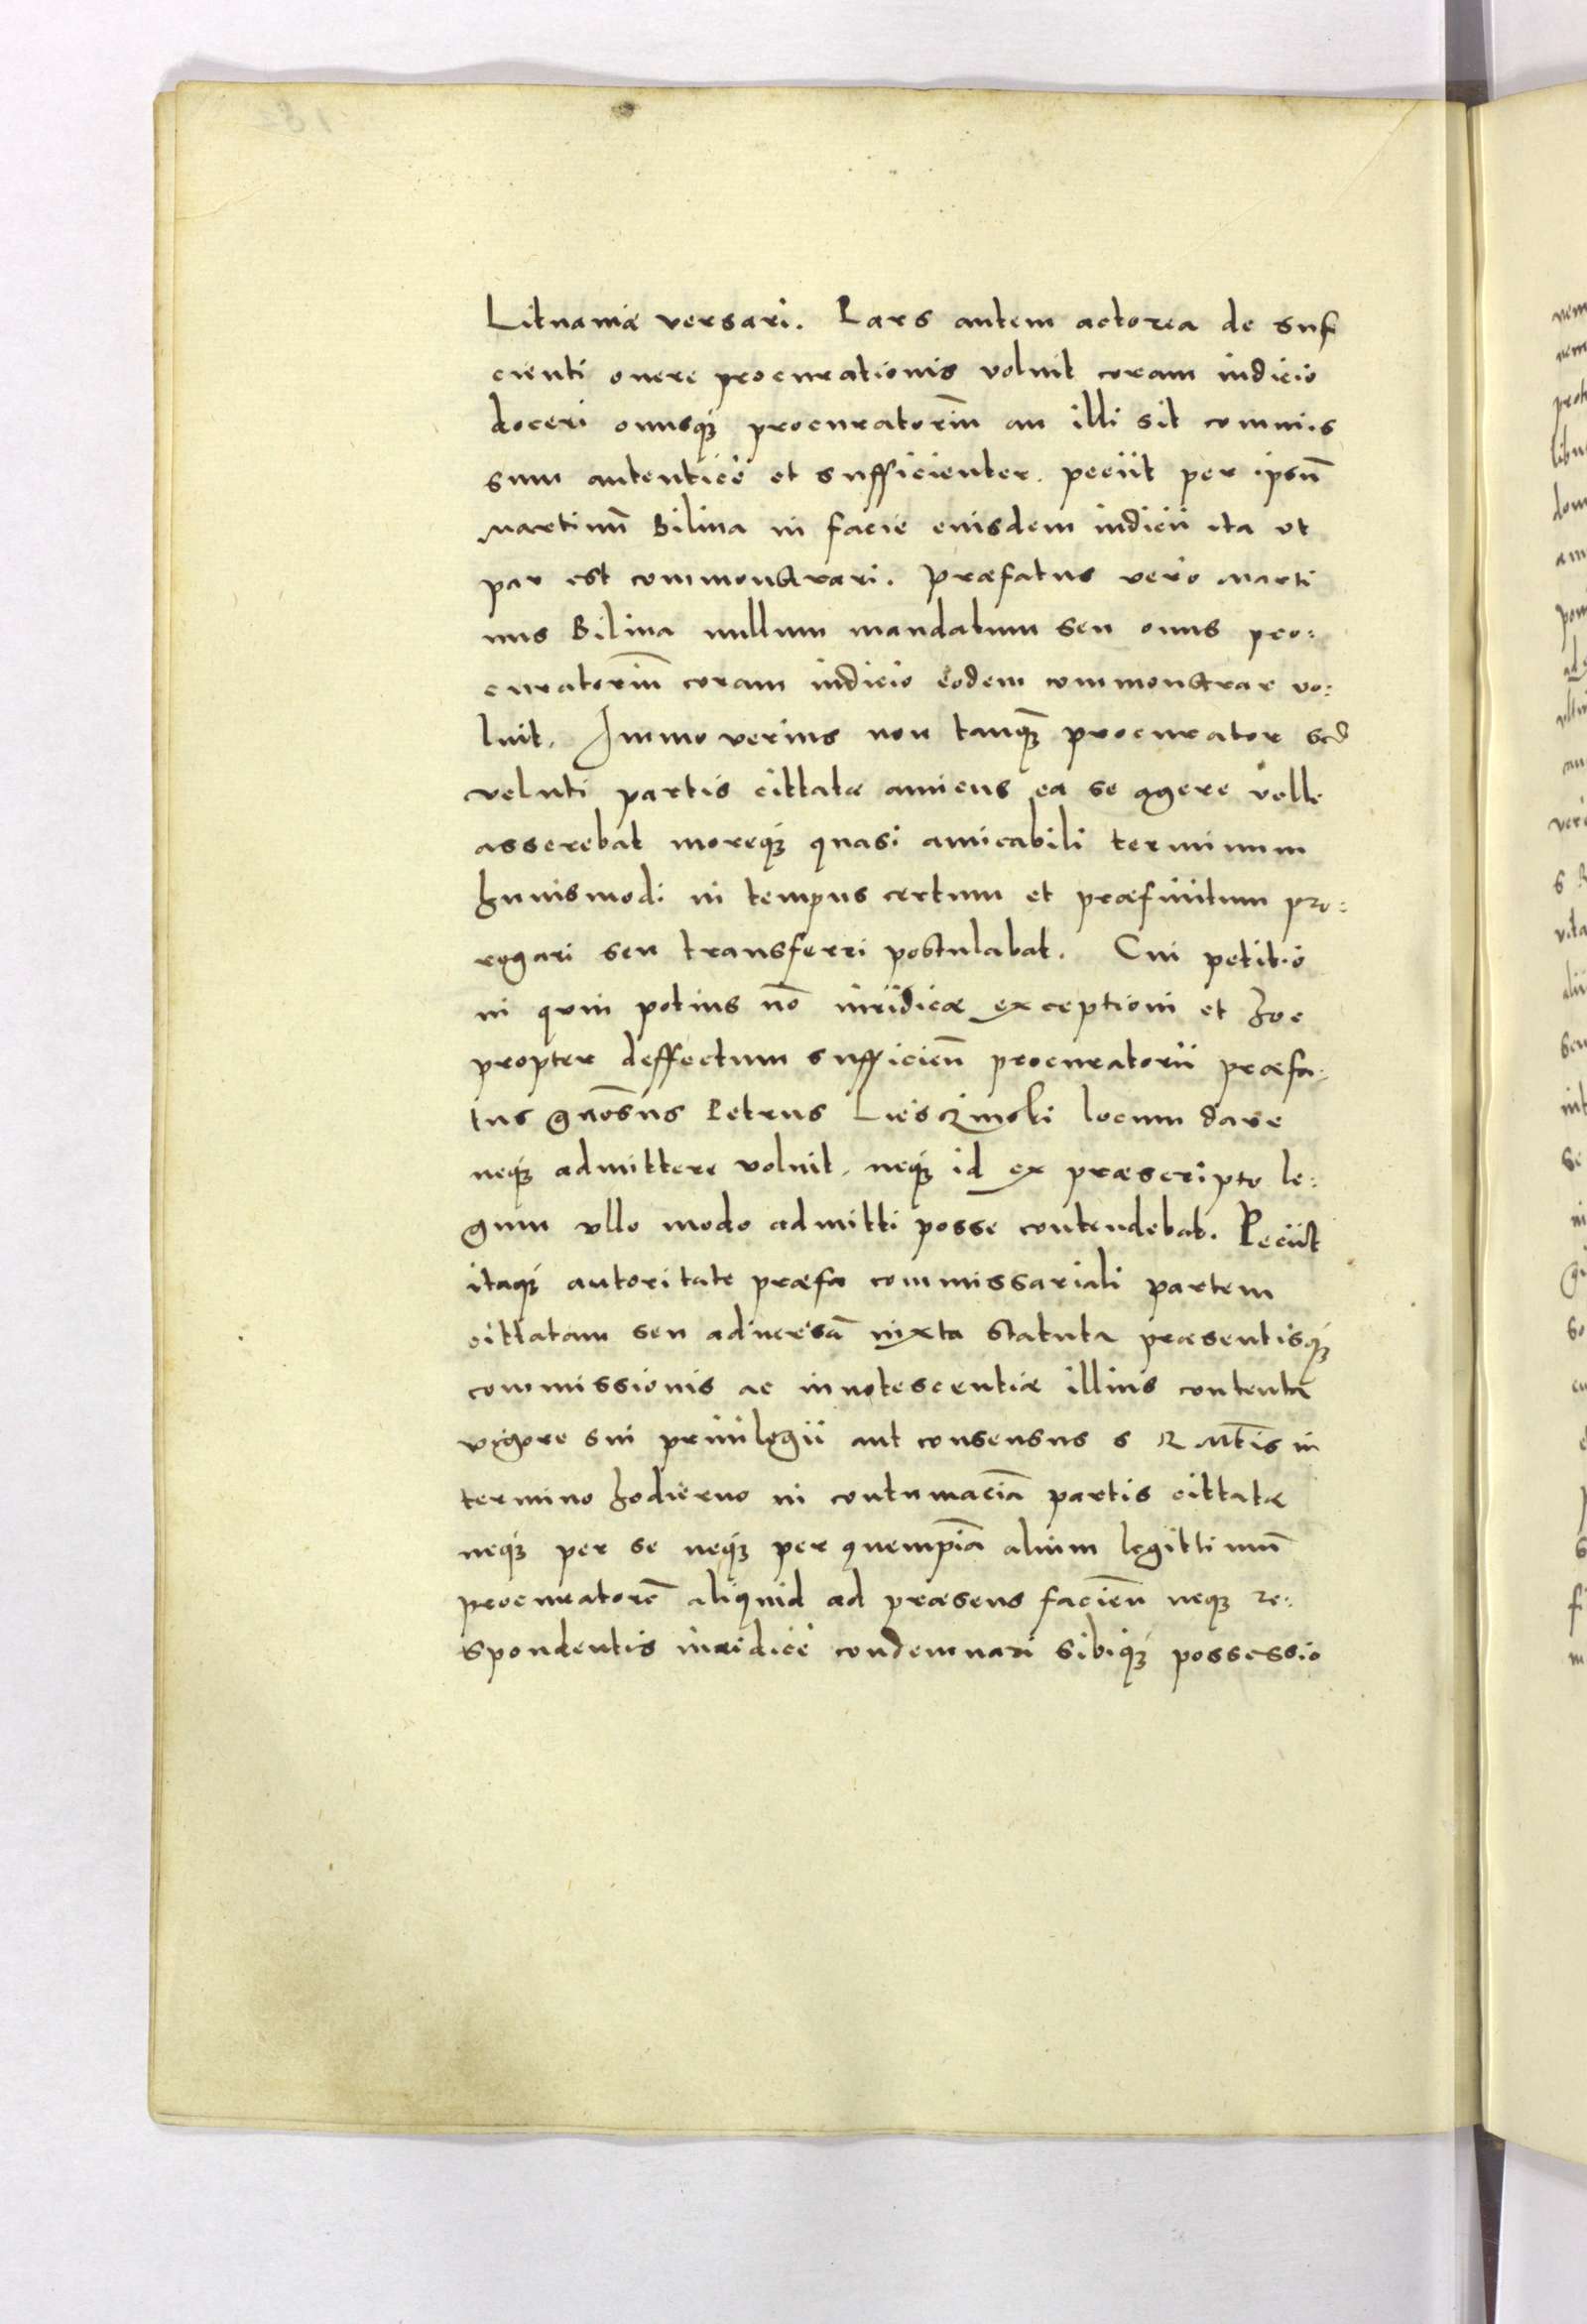 Lituaniæ versari. Pars autem actorea de suf
cienti onere procurationis voluit coram iudicio
doceri onusq3 procuratoriu̅ an illi sit commis
sum autenticè et sufficienter. peciit per ipsu̅
Martinu̅ Bilina in facie euisdem iudicii ita vt
par est commonstrari. Præfatus verò Marti
nus Bilina nullum mandatum seu onus pro:
curatoriu̅ coram iudicio eodem commonstrar vo:
luit. Immo verius non tanq̅3 procurator sed
veluti partis cittatæ amicus ea se agere velle
asserebat moreq3 quasi amicabili terminum
huiusmodi in tempus certum et præfinitum pro:
rogari seu transferri postulabat. Cui petitio
ni quin potius no̅ iuridicæ exceptioni et hoc
propter deffectum sufficien̅ procuratorii præfa:
tus gn̅osus Petrus Liesczinski locum dare
neq3 admittere voluit. neq3 id ex præscripto le:
gum vllo modo admitti posse contendebat. Peciit
itaq3 autoritate præfa commissariali partem
cittatam seu aduersa̅ iuxta statuta præsentisq3
commissionis ac innotescentiæ illius contenta
vigore sui priuilegii aut consensus S R M̅tis in
termino hodierno in contumacia̅ partis cittatæ
neq3 per se neq3 per quempia̅ alium legittimu̅
procuratore̅ aliquid ad præsens facien̅ neq3 re:
spondentis iuridicè condemnari sibiq3 possessio